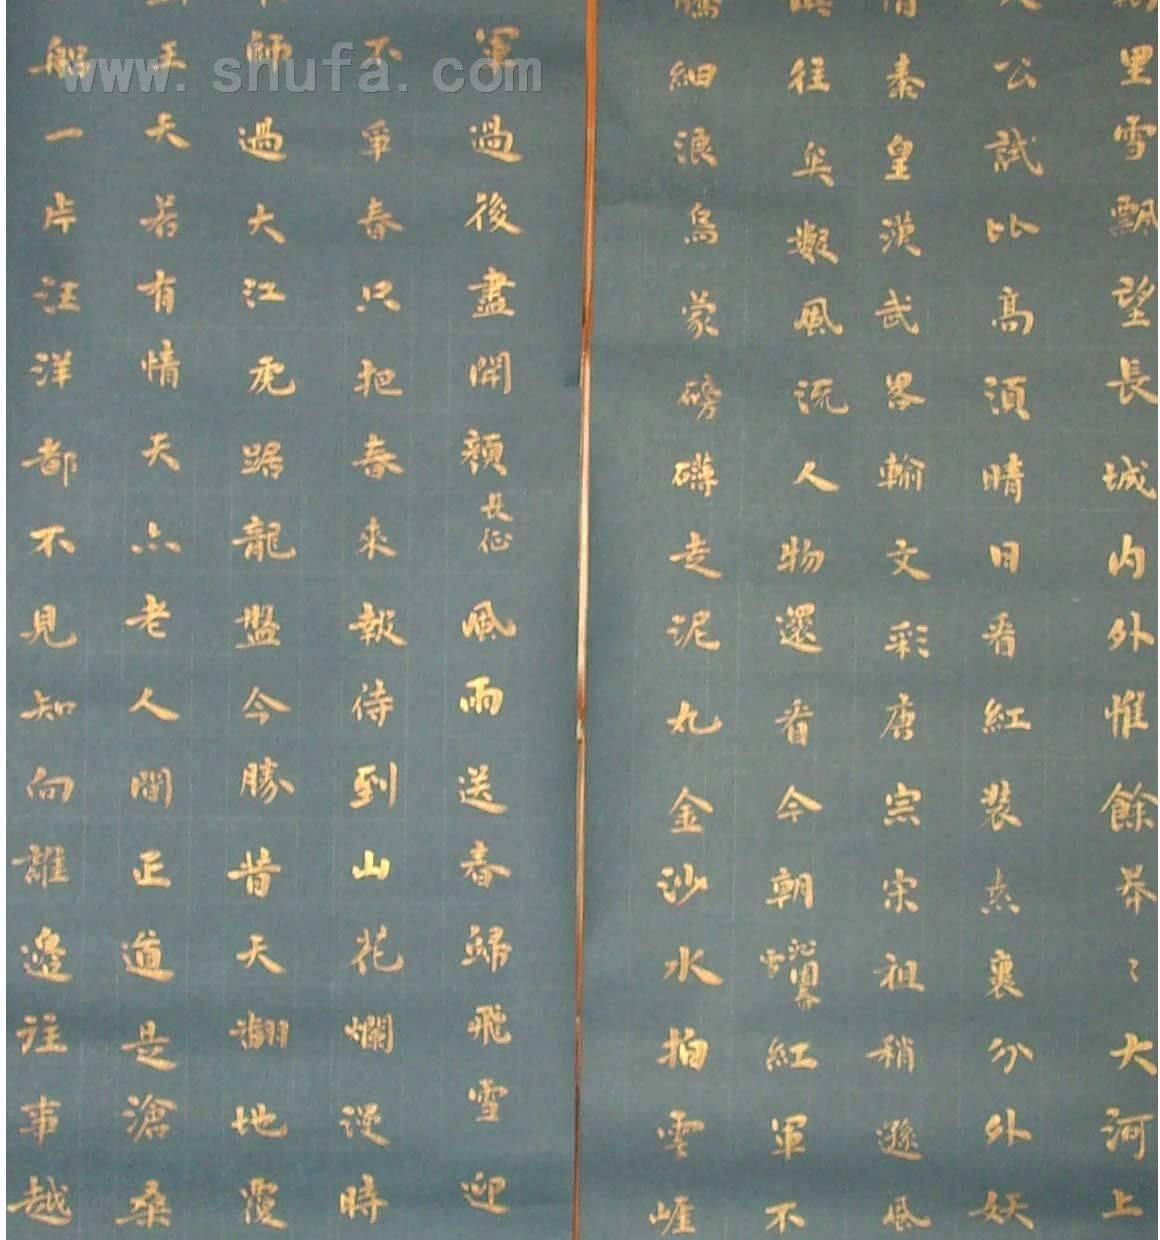 里雪飄望長城內外惟餘莽〻大河上
公試比高須晴日看紅裝素裹分外妖
惜秦皇漢武畧輸文彩唐宗宋祖稍遜風
俱往矣數風流人物還看今朝 沁園春 雪 紅軍不
騰細浪烏蒙磅礴走泥丸金沙水拍雲崖
軍過後盡開顏 長征 風雨送春歸飛雪迎
不爭春只把春來報待到山花爛漫時
師過大江虎踞龍盤今勝昔天翻地覆
王天若有情天亦老人間正道是滄桑
船一片汪洋都不見知向誰邊往事越
www.shufa.com